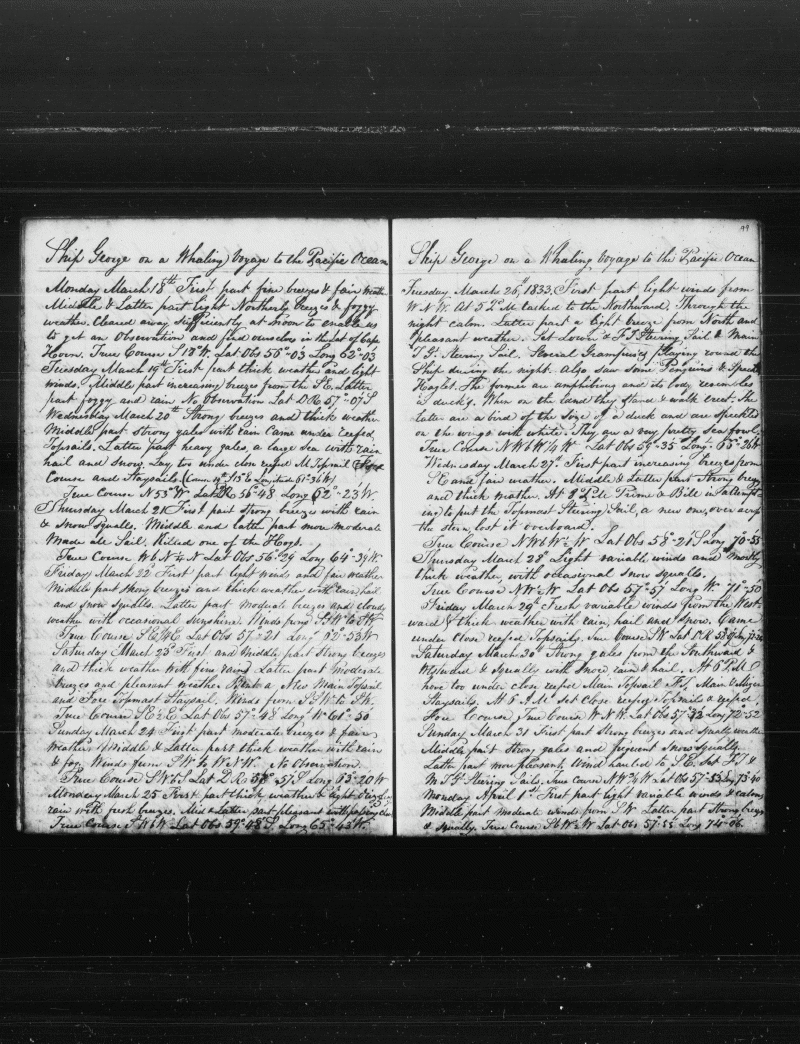 Ship George on a Whaling Voyage to the Pacific Ocean
Monday March 18th First part fine breezes & fair weath
Middle & Latter part light Northerly breezes & foggy
weather. Cleared away sufficiently at noon to enable us
to get an Observation and find ourselves in the Lat of Cape
Horn. True Course S 18° W. Lat Obs 56°-03 Long 62°-03
Tuesday March 19th First part thick weather and light
winds. Middle part increasing breezes from the S.E. Latter
part foggy and rain No Observation Lat D R 57°-07 S
Wednesday March 20th Strong breezes and thick weather
Middle part strong gales with rain Came under reefed
Topsails. Latter part heavy gales, a large sea with rain
hail and snow. Lay too under close reefed M. Topsail
Course and Staysails.
True Course N 53° W. Lat D R 56°-48 Long 62°-23' W.
Thursday March 21st First part strong breezes with rain
& Snow Squalls. Middle and latter part more moderate
Made all Sail. Killed one of the Hogs.
True Course W b N ¼ N Lat Obs 56°-29 Long 64°-39 W.
Friday March 22d First part light winds and fair weather
Middle part strong breezes and thick weather with rain, hail
and Snow Squalls. Latter part moderate breezes and cloudy
weather with occasional sunshine. Winds from S.W to
True Course Lat Obs 57°-21 Long 62°-53 W
Saturday March 23d First and Middle part Strong breezes
and thick weather with fine rain. Latter part moderate
breezes and pleasant weather Bent a New Main Topsail
and Fore Topmast Staysail. Winds from to
True Course Lat Obs 57°-48 Long W 61°-50
Sunday March 24 First part moderate breezes & fair
weather Middle & Latter part thick weather with rain
& fog Winds from S.W to W.N.W. No Observation.
True Course Lat D R 58°-57 S Long 63°-20 W
Monday March 25 First part thick weather & light
rain with fresh breezes. Mid & Latter part pleasant with passing clouds
True Course Lat Obs 59°-08 S. Long 65°-43 W.
99
Ship George on a Whaling Voyage to the Pacific Ocean
Tuesday March 26th 1833, First part light winds from
W N W. At 5 P.M. tacked to the Northward, Through the
night calm. Latter part a light breeze from North and
pleasant weather. Set Lower & F.T. Steering Sail & Main
T.G. Steering Sail. Several Grampuses playing round the
Ship during the night. Also saw some Penguins & Speckled
Haglets. The former are amphibious and its body resembles
a duck's. When on the land they stand & walk erect. The
later are a bird of the size of a duck and are speckled
on the wings with white. They are a very pretty sea fowl.
True Course N W b W ¼ W Lat Obs 59°-35' Long 65°-26 W
Wednesday March 27th First part increasing breezes from
and fair weather. Middle & Latter part strong breezes
and thick weather. At 8 P.M. & Bill in attempt-
ing to put the Topmast Steering Sail, a new one, over
the stern, lost it overboard.
True Course N W b W ½ W Lat Obs 58°-21 Long 70°-53
Thursday March 28th Light variable winds and mostly
thick weather, with occasional Snow squalls.
True Course N W ½ W Lat Obs 57°-57' Long W. 71°-50
Friday March 29th Fresh variable winds from the West-
ward & thick weather with rain, hail and Snow. Came
under Close reefed Topsails. True Course S W Lat D R
Saturday March 30th Strong gales from the Southward &
Westward & squalls with snow rain & hail. At 6 P.M.
hove too under close reefed Main Topsail Main & Mizen
Staysails. At 6 A.M. set Close reefed Topsails & reefed
Fore Course. True Course W N W. Lat Obs Long 72°-52
Sunday March 31 First part Strong breezes and squally weather
Middle part strong gales and frequent Snow squalls.
Latter part more pleasant. Wind hauled to S.E set
M.T.G. Steering Sails. True Course N W ¾ W Lat Obs 57°-33 Long 73°-40
Monday April 1st First part light variable winds & calms
Middle part moderate winds from S.W. Latter part Strong breezes
& squally. True Course Lat Obs 57°-55 Long 74°-06.